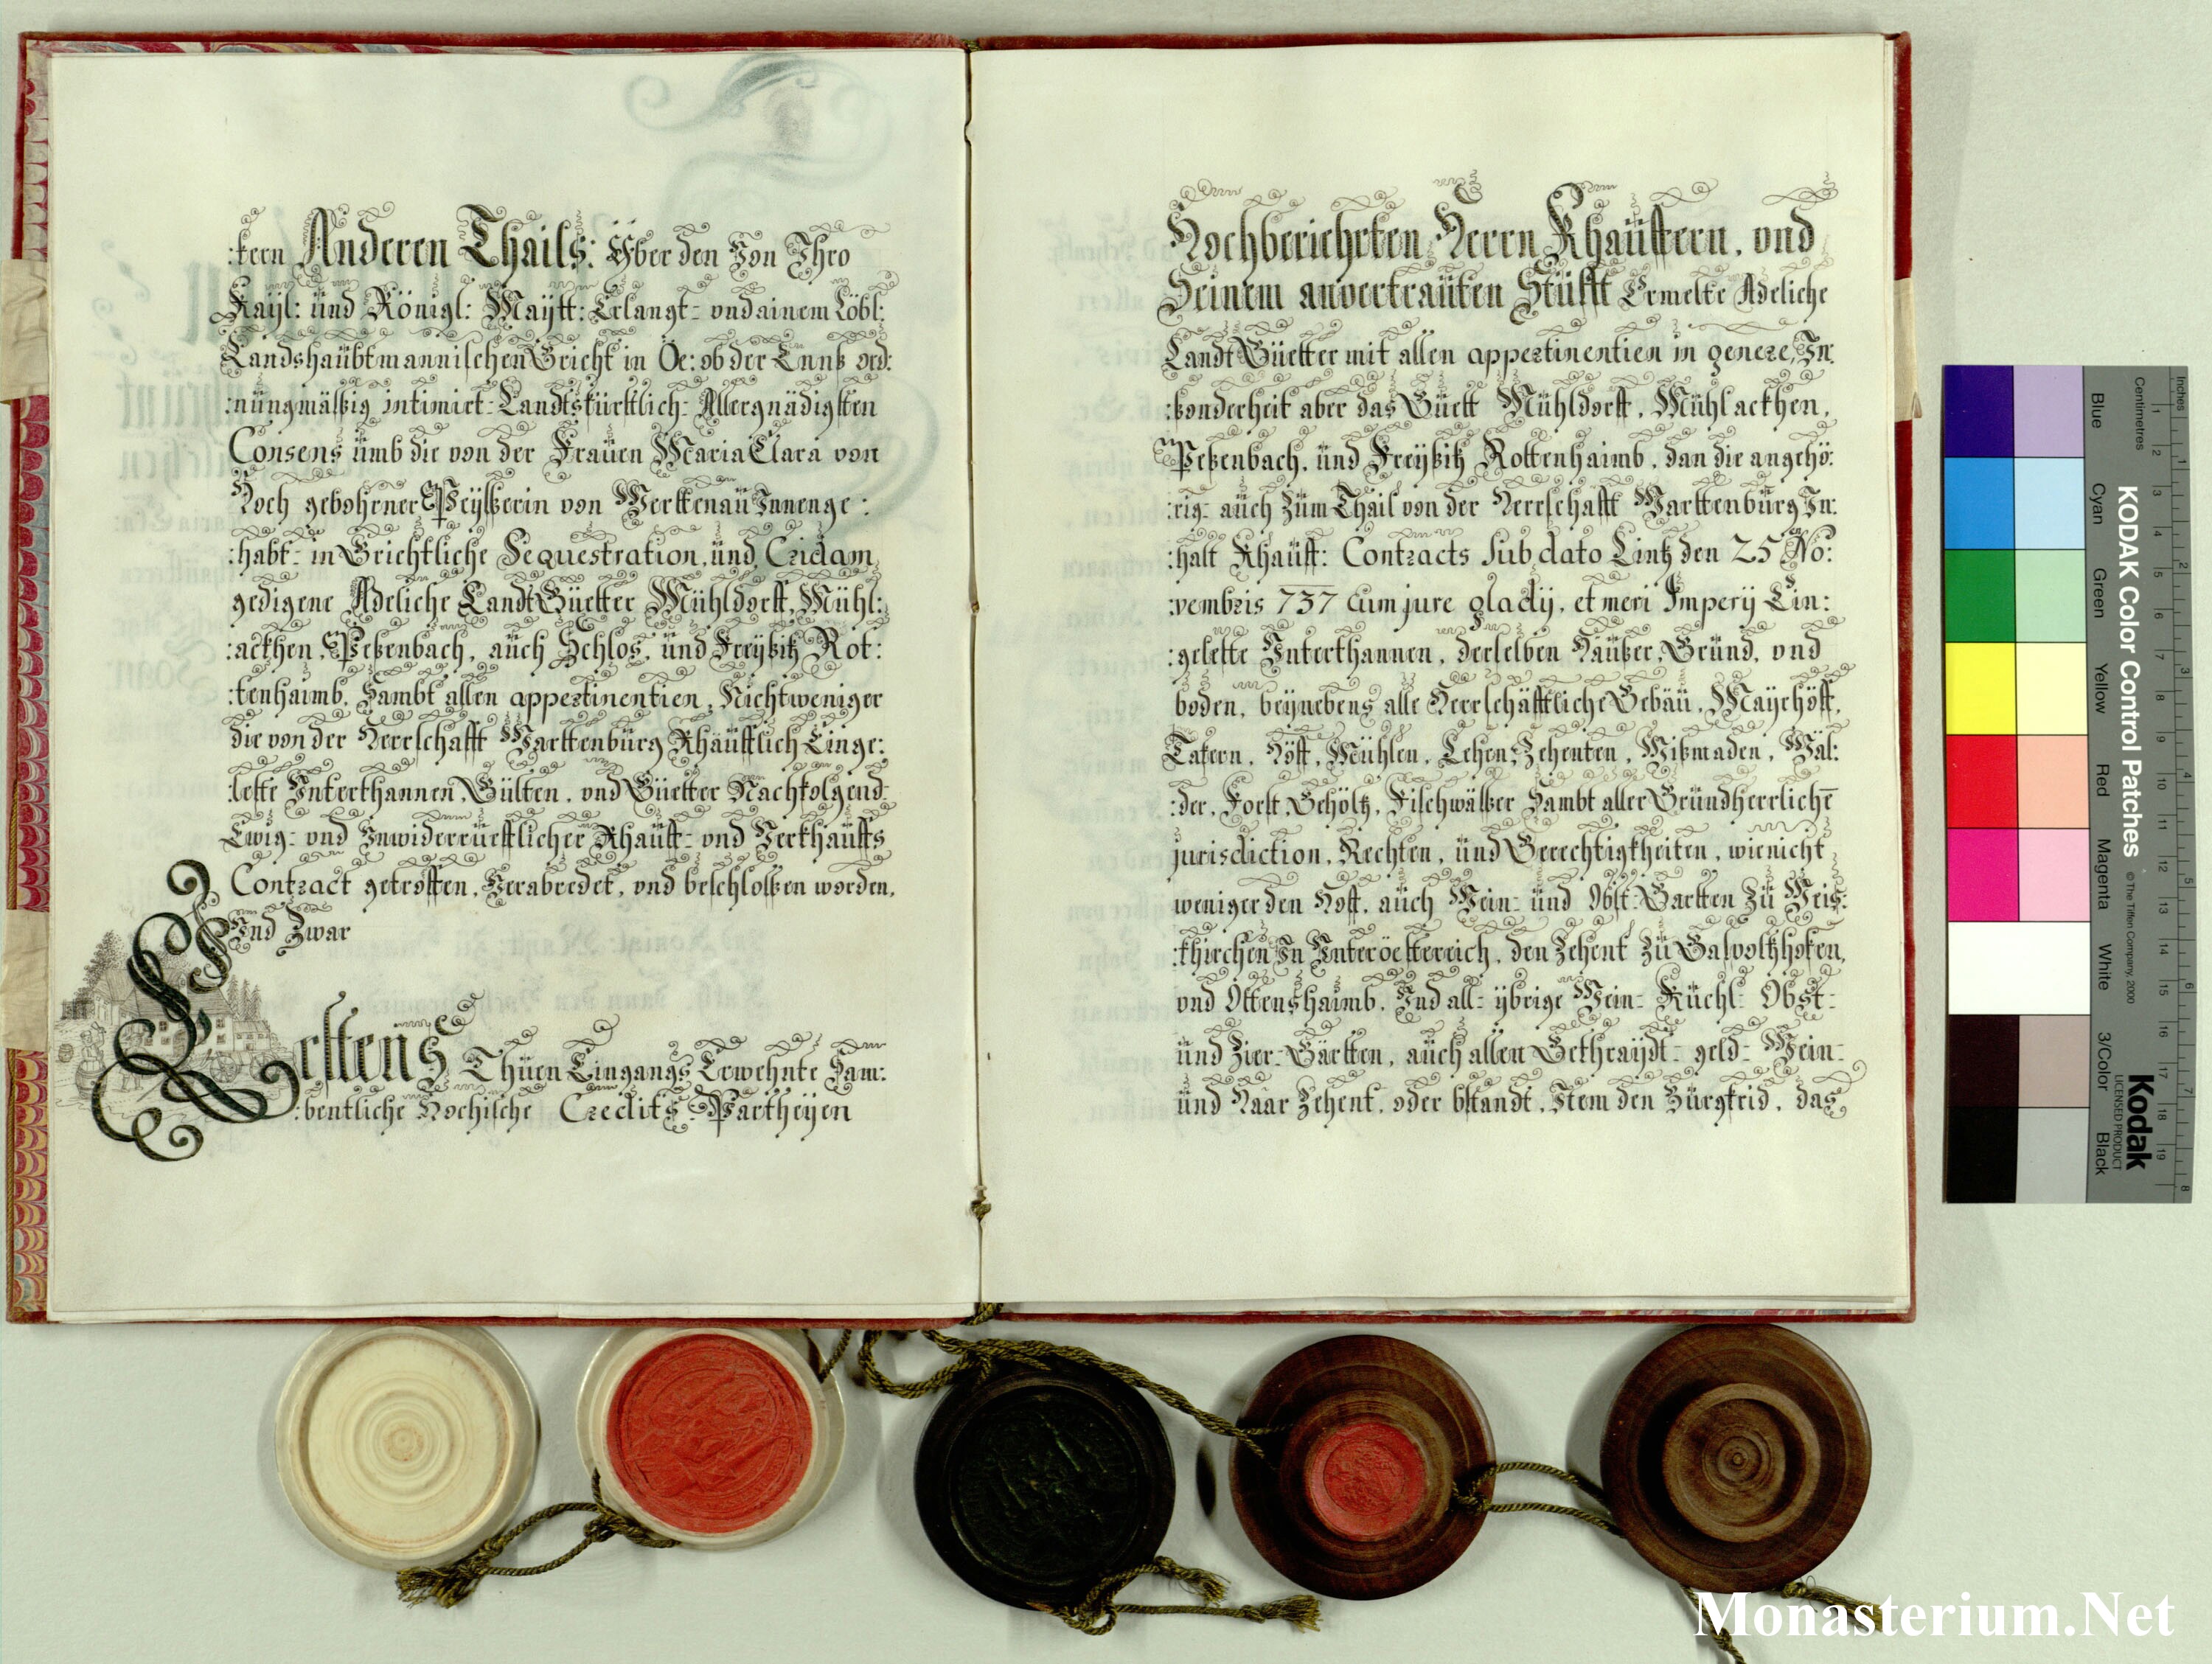 :kern Anderen Thails: Yber den Von Ihro
Kayl: und Königl: Maytt: Erlangt- vnd ainem Löbl:
Landshaubtmannischen Gricht in Oe: ob der Ennß ord:
:nungmäßig intimirt- Landtsfürstlich- Allergnädigsten
Consens umb die von der Frauen Maria Clara von
Hoch gebohrner Peyßerin von Werttenau Innenge:
:habt- in Grichtliche Sequestration, und Cridam
gedigene Adeliche Landt Güetter Mühldorff, Mühl:
:ackhen, Peßenbach, auch Schlos, und Freysitz Rot:
:tenhaimb, Sambt allen appertinentien, Nicht weniger
die von der Herrschafft Warttenburg Khäufflich Einge:
:leste Vnterthannen, Gülten, vnd Güetter Nachfolgend-
Ewig- vnd Vnwiderruefflicher Khauff- vnd Verkhauffs
Contract getroffen, Verabredet, vnd beschloßen worden,
Vnd Zwar
Erstens Thuen Eingangs Erwehnte Sam:
:bentliche Hochische Credits-Partheyen
Hochberiehrten Herrn Khauffern, vnd
Seinem anvertrauten Stüfft Ermelte Adeliche
Landt Güetter mit allen appertinentien in genere, In:
:sonderheit aber das Guett Mühldorff, Mühlackhen,
Peßenbach, und Freysitz Rottenhaimb, dan die angehö:
:rig- auch Zum Thail von der Herrschafft Warttenburg In:
:halt Khauff: Contracts sub dato Lintz den 25 No:
:vembris 737 cum jure gladij, et meri Imperij Ein:
:geleste Vnterthannen, derselben Häußer, Gründ, vnd
boden, beynebens alle Herrschäfftliche Gebäu, Mayrhöff,
Tafern, Höff, Mühlen, Lehen, Zehenten, Wißmaden, Wäl:
:der, Forst, Gehöltz, Fischwäßer Sambt aller Gründherrliche
jurisdiction, Rechten, und Gerechtigkheiten, wie nicht
weniger den Hoff, auch Wein- und Obst-Gartten Zu Weis:
:khirchen In Vnteröesterreich, den Zehent Zu Galvolkhofen,
vnd Ottenshaimb, Vnd all- ybrige Wein- Kuchl- Obst-
und Zier-Gärtten, auch allen Gethraydt- geld- Wein-
und Haar Zehent, oder bstandt, Item den Burgfrid, das
KODAK Color Control Patches
© The Tiffen Company, 2000
Kodak
LICENSED PRODUCT
Inches
Centimetres
Blue
Cyan
Green
Yellow
Red
Magenta
White
3/Color
Black
Monasterium.Net